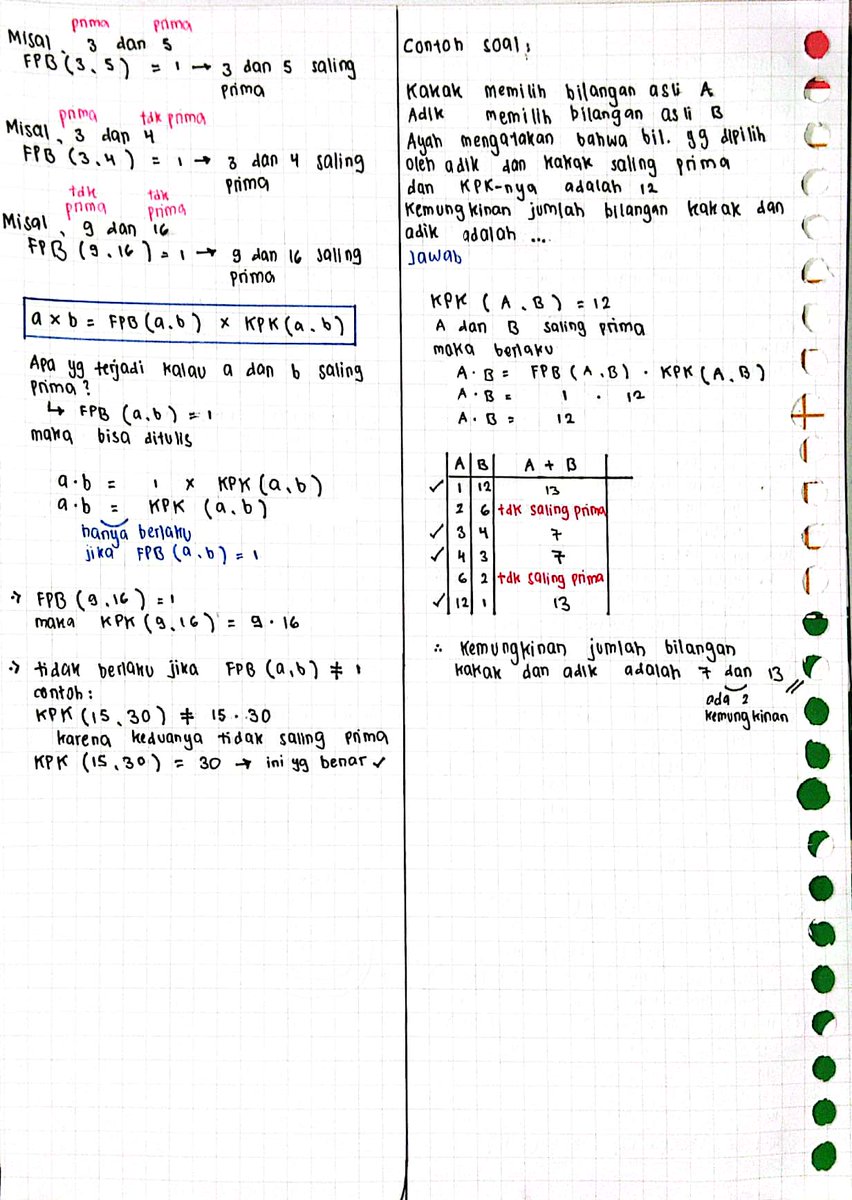 prima prima
Misal, 3 dan 5
FPB (3,5) = 1 → 3 dan 5 saling
prima
prima tdk prima
Misal, 3 dan 4
FPB (3,4) = 1 → 3 dan 4 saling
prima
tdk tdk
prima prima
Misal, 9 dan 16
FPB (9,16) = 1 → 9 dan 16 saling
prima
a × b = FPB (a,b) × KPK (a,b)
Apa yg terjadi kalau a dan b saling
prima?
↳ FPB (a,b) = 1
maka bisa ditulis
a·b = 1 × KPK (a,b)
a·b = KPK (a,b)
hanya berlaku
jika FPB (a,b) = 1
→ FPB (9,16) = 1
maka KPK (9,16) = 9·16
→ tidak berlaku jika FPB (a,b) ≠ 1
contoh:
KPK (15,30) ≠ 15·30
karena keduanya tidak saling prima
KPK (15,30) = 30 → ini yg benar ✓
Contoh soal:
Kakak memilih bilangan asli A
Adik memilih bilangan asli B
Ayah mengatakan bahwa bil. yg dipilih
oleh adik dan kakak saling prima
dan KPK-nya adalah 12
Kemungkinan jumlah bilangan kakak dan
adik adalah ...
Jawab
KPK (A,B) = 12
A dan B saling prima
maka berlaku
A·B = FPB (A,B) · KPK (A,B)
A·B = 1 · 12
A·B = 12
A B A + B
✓ 1 12 13
2 6 tdk saling prima
✓ 3 4 7
✓ 4 3 7
6 2 tdk saling prima
✓ 12 1 13
∴ Kemungkinan jumlah bilangan
kakak dan adik adalah 7 dan 13 //
ada 2
kemungkinan